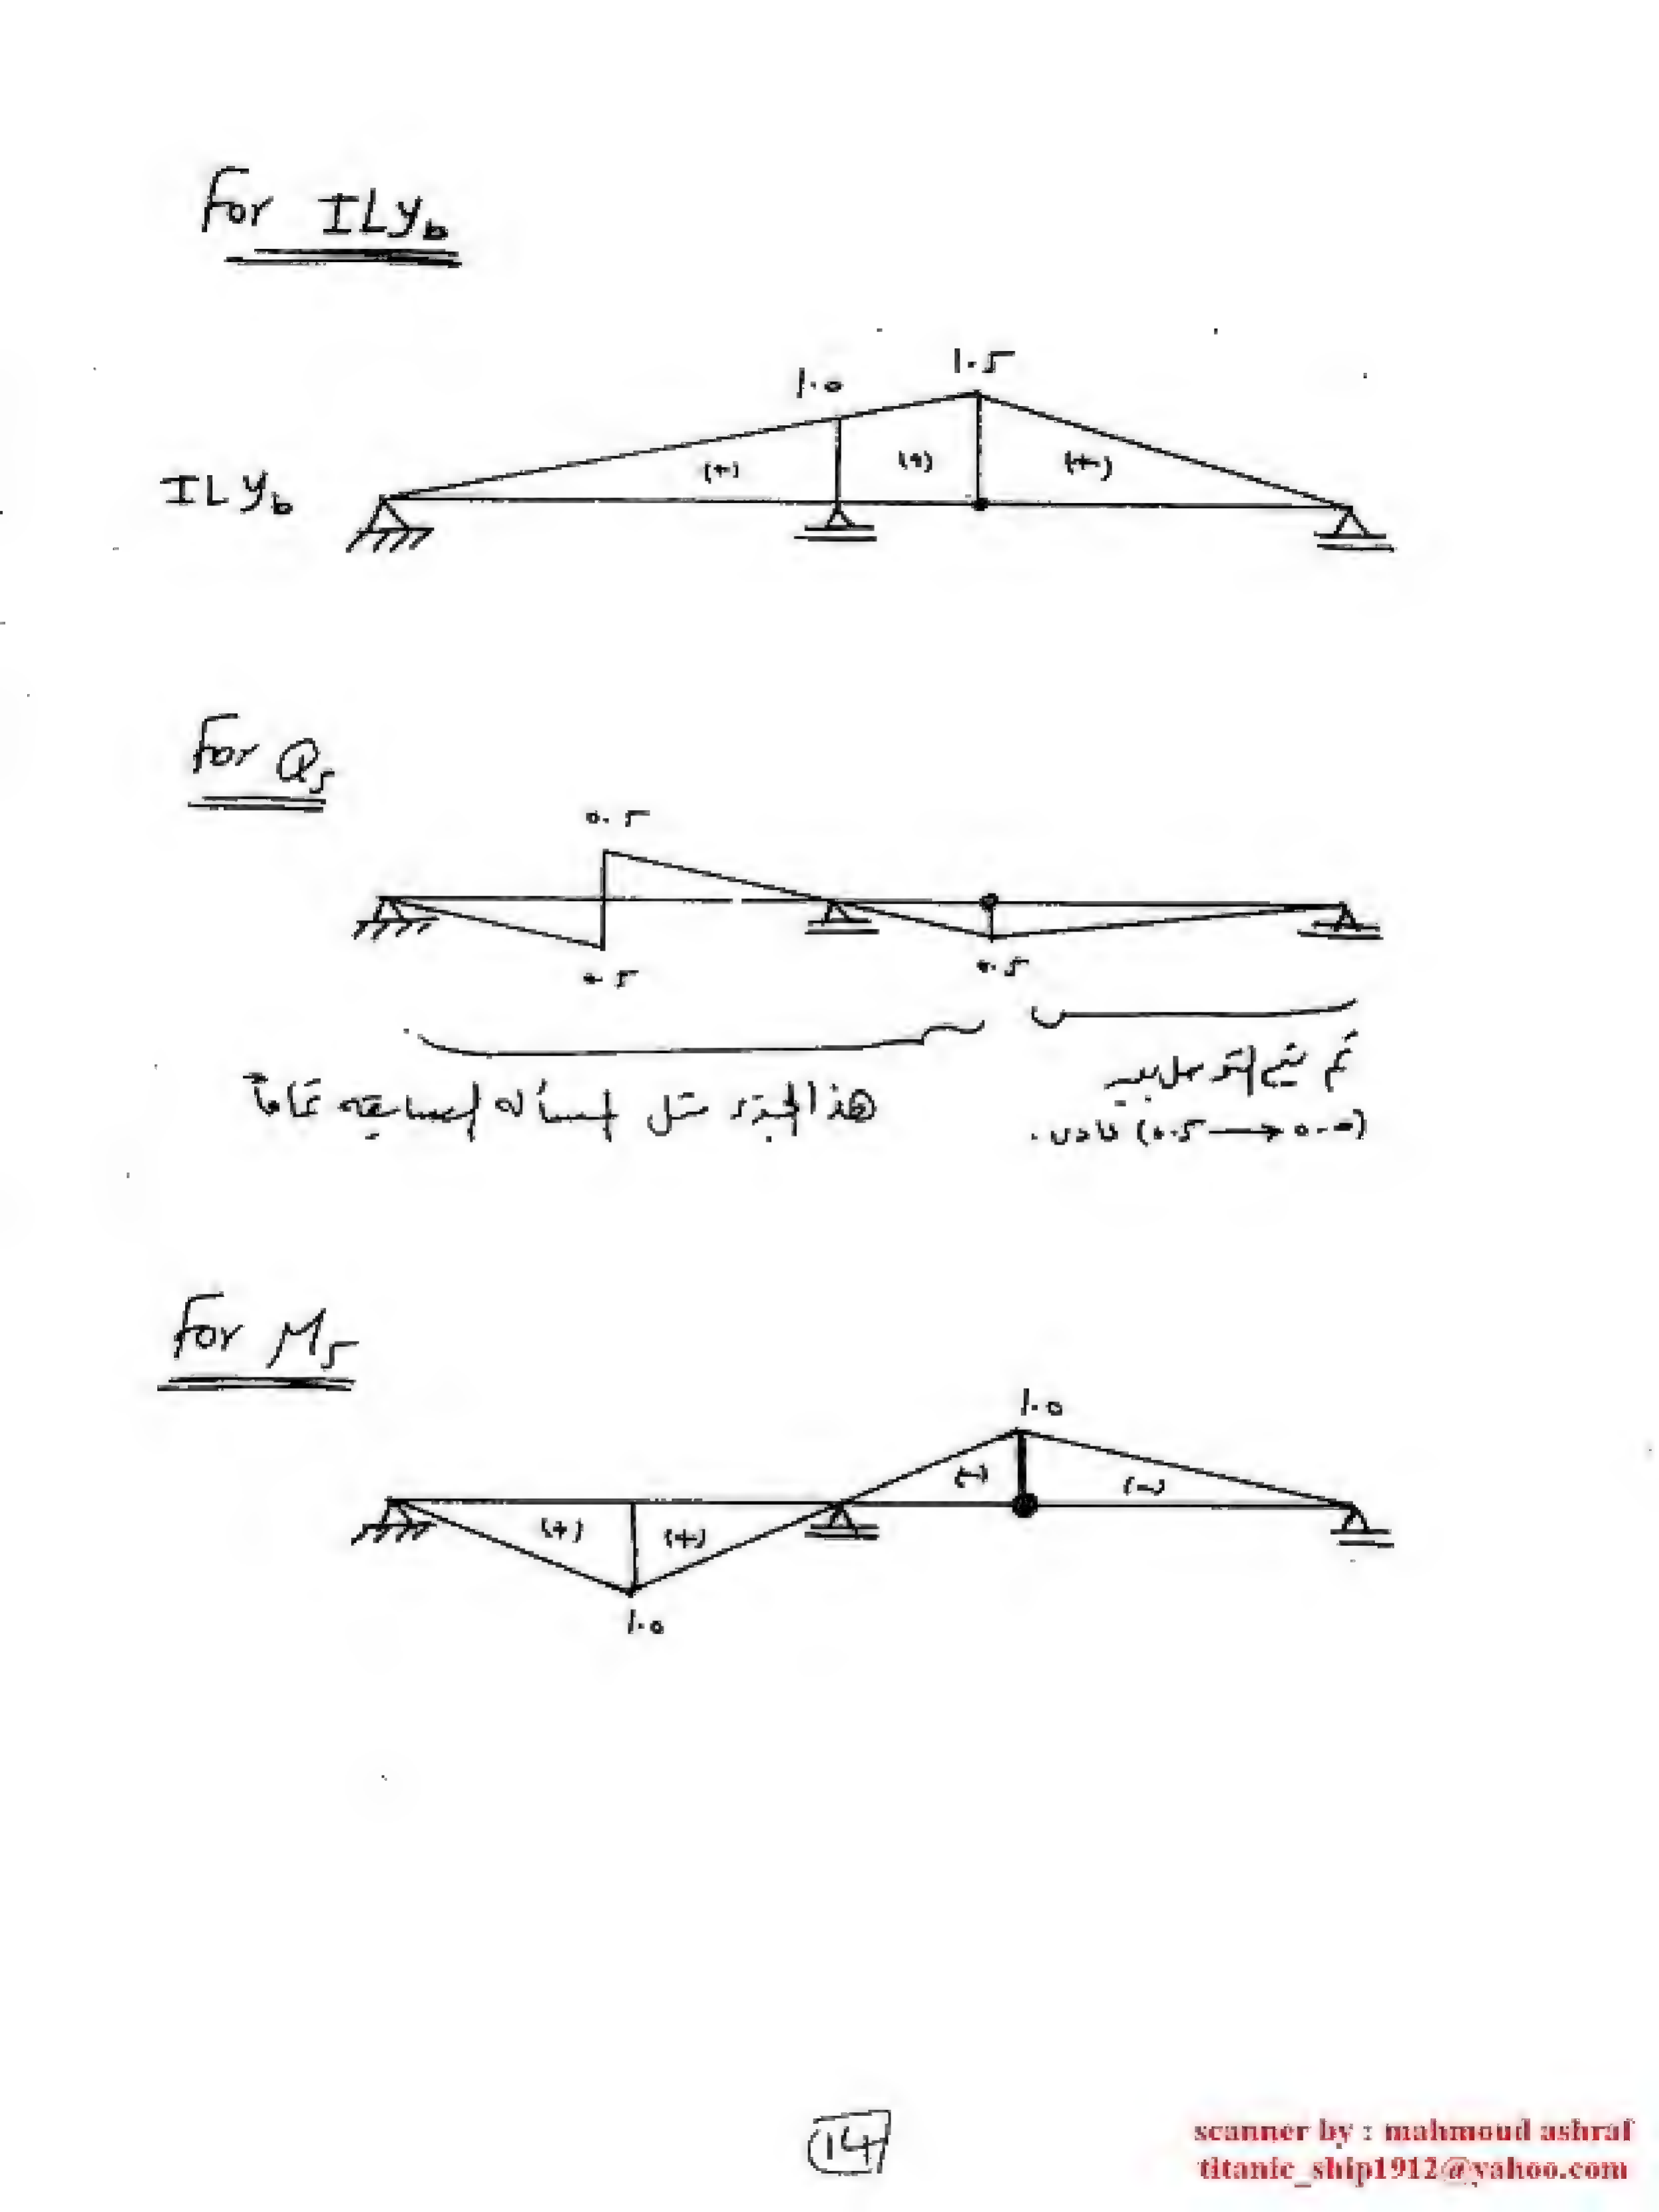 For ILYb
1.0 1.5
(+) (+) (+)
ILYb
For Qs
0.5
0.5 0.5
هذا الجزء مثل المسألة السابقة تماماً
ثم يتم التوصيل بيه
(0.5 → 0.0) عادى .
For Ms
1.0
(-) (-)
(+) (+)
1.0
14
scanner by : mahmoud ashraf
titanic_ship1912@yahoo.com